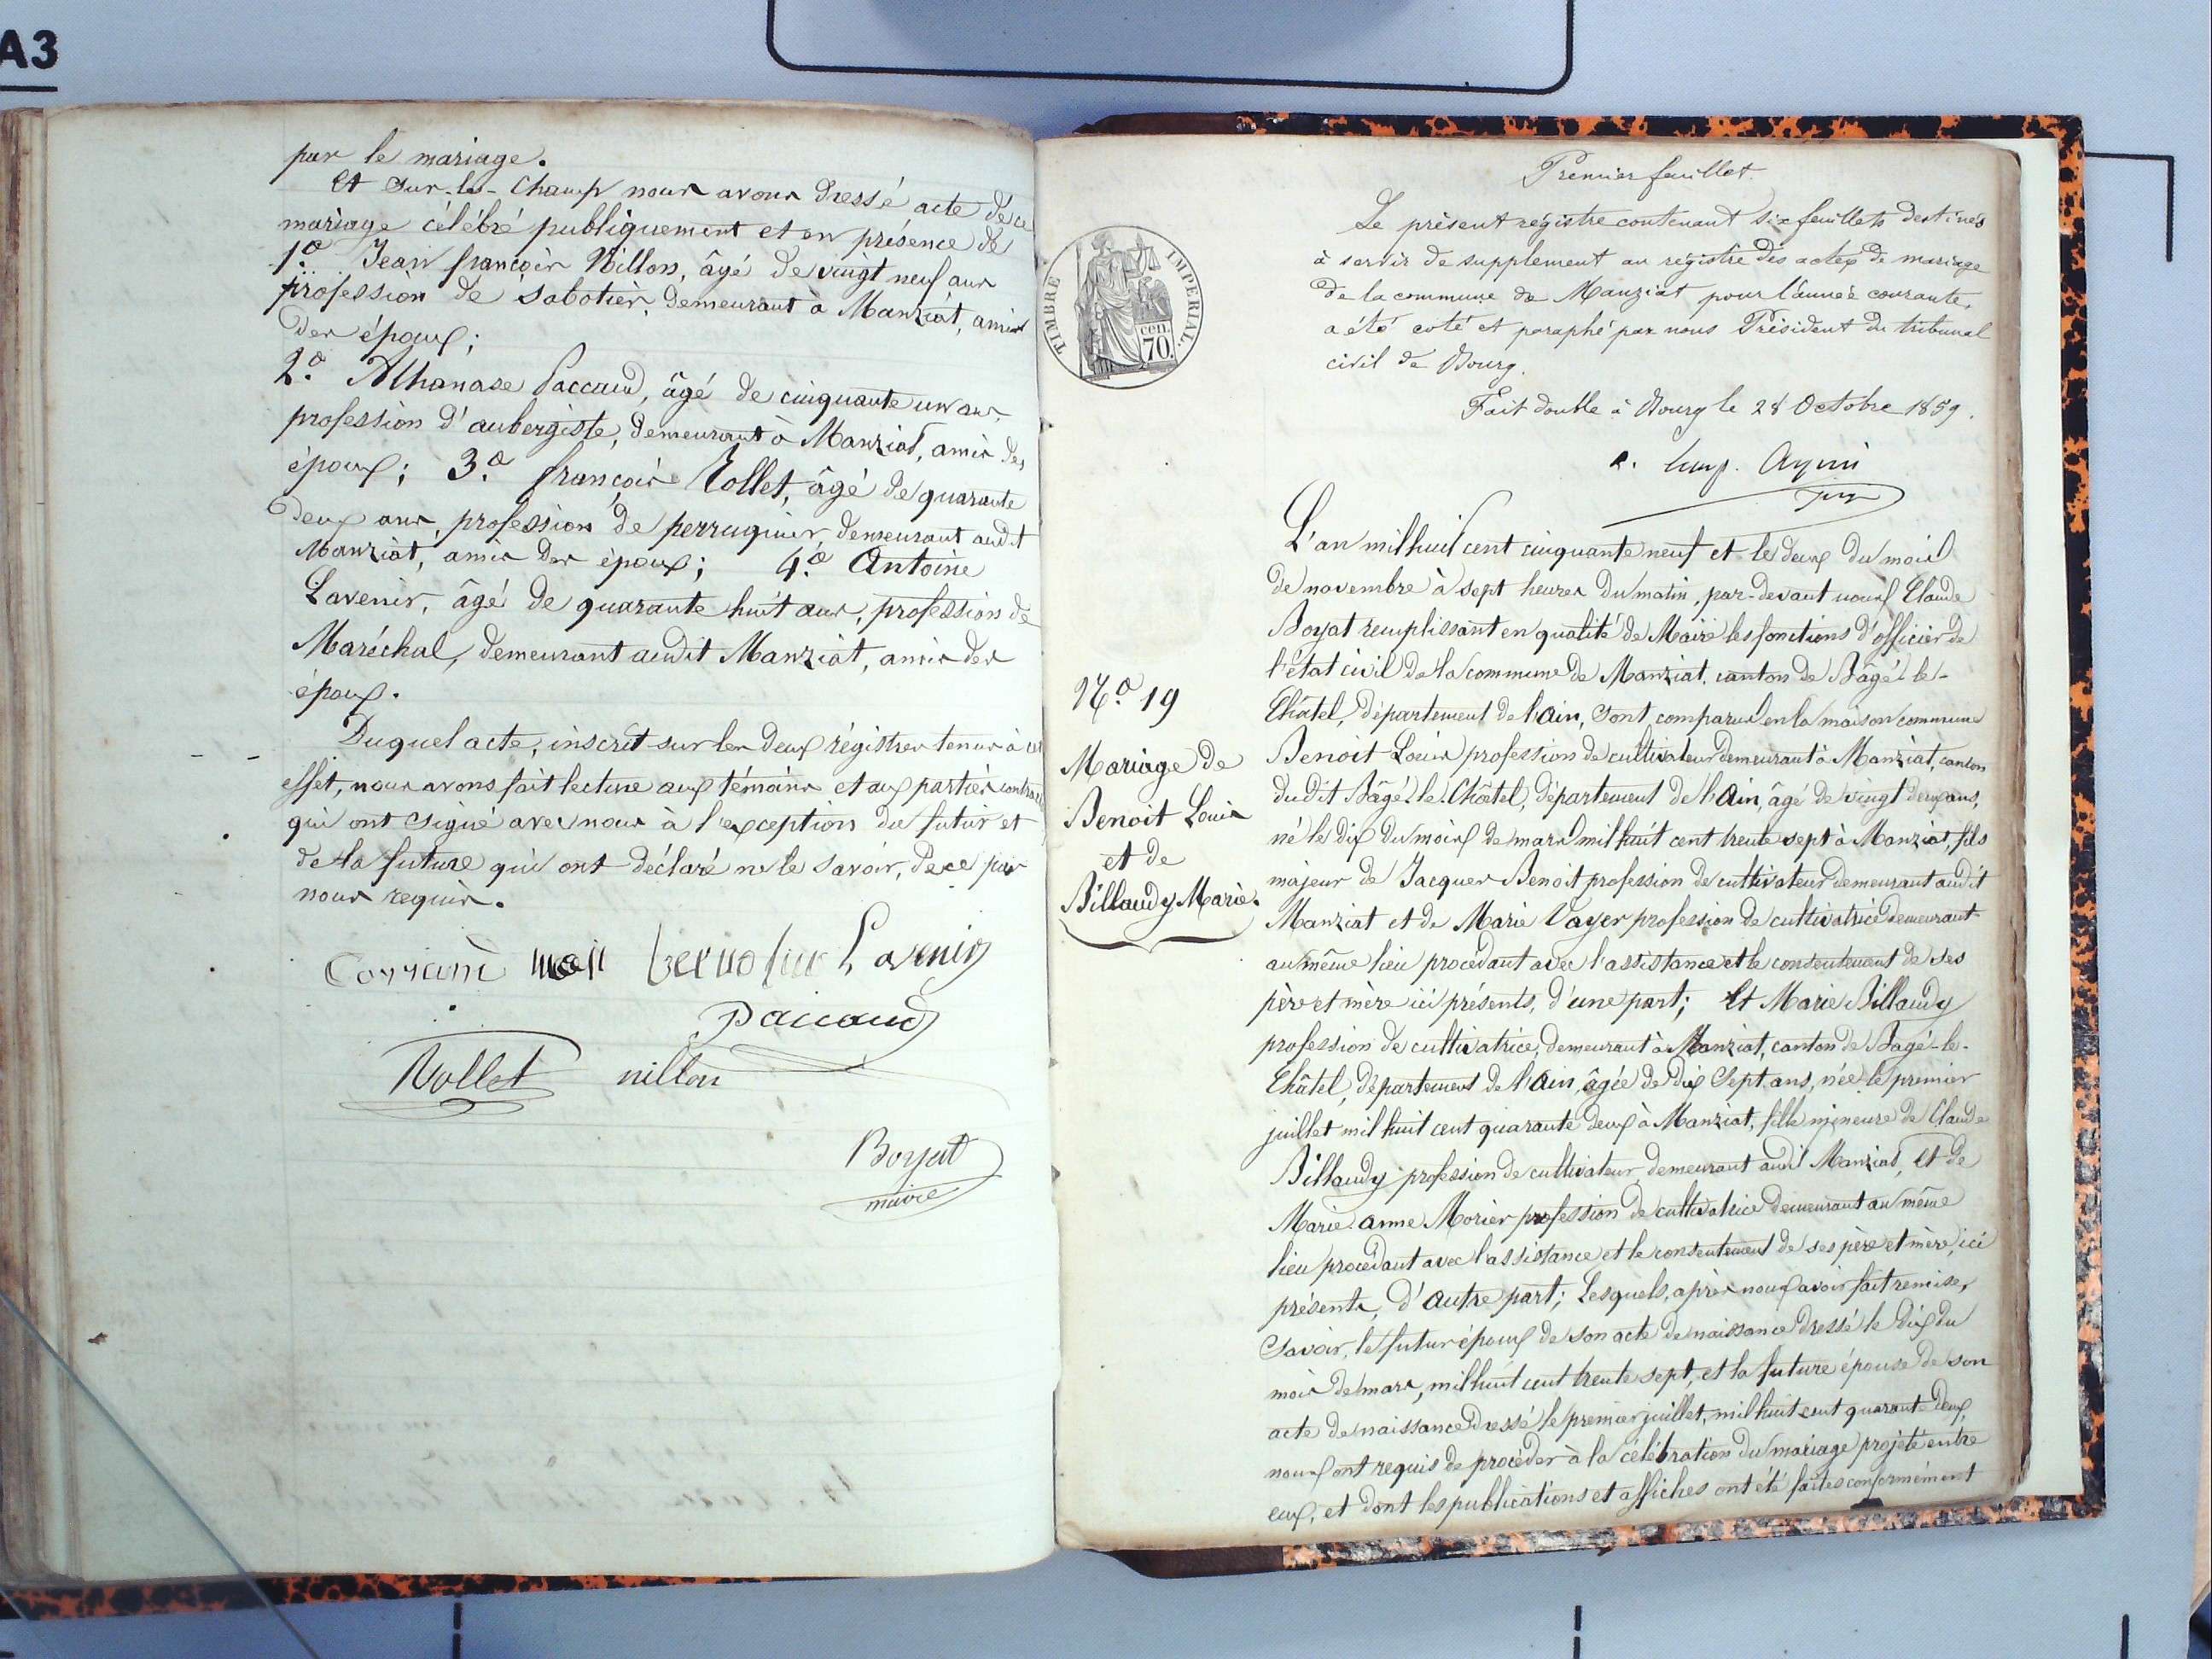 A3
par le mariage.
Et sur-le-Champ nous avons dressé acte de ce
mariage célébré publiquement et en présence de
1.o Jean françois Nillon, âgé de vingt neuf ans
profession de sabotier, demeurant à Manziat, amis
des époux;
2.o Athanase Paccaud, âgé de cinquante un ans
profession d'aubergiste, demeurant à Manziat, amis des
époux; 3.o françois Vollet, âgé de quarante
deux ans, profession de perruquier, demeurant audit
Manziat, amis des époux; 4.o Antoine
Lavenir, âgé de quarante huit ans, profession de
Maréchal, demeurant audit Manziat, amis des
époux.
Duquel acte, inscrit sur les deux régistres tenus à cet
effet, nous avons fait lecture aux témoins et aux parties
qui ont signé avec nous à l'exception du futur et
de la future qui ont déclaré ne le savoir, de ce par
nous requis.
Lavenir
Paccaud
Vollet nillon
Boyat
maire
Premier feuillet.
Le présent régistre contenant six feuillets destinés
à servir de supplement au régistre des actes de mariage
de la commune de Manziat pour l'année courante,
a été coté et paraphé par nous Président du tribunal
civil de Bourg.
Fait double à Bourg le 28 Octobre 1859.
TIMBRE IMPERIAL.
cen.
70.
L'an mil huit cent cinquante neuf et le deux du mois
de novembre à sept heures du matin, par-devant nous Claude
Boyat remplissant en qualité de Maire les fonctions d'officier de
l'état civil de la commune de Manziat, canton de Bâgé-le-
Châtel, département de l'Ain, sont comparus en la maison commune
Benoit Louis profession de cultivateur demeurant à Manziat, canton
dudit Bâgé-le-Châtel, département de l'Ain, âgé de vingt deux ans,
né le dix du mois de mars mil huit cent trente sept à Manziat, fils
majeur de Jacques Benoit profession de cultivateur demeurant audit
Manziat et de Marie Vayer profession de cultivatrice demeurant
au même lieu procédant avec l'assistance et le consentement de ses
père et mère ici présents, d'une part; Et Marie Billaudy
profession de cultivatrice, demeurant à Manziat, canton de Bagé-le-
Châtel, département de l'Ain, âgée de dix sept ans, née le premier
juillet mil huit cent quarante deux à Manziat, fille mineure de Claude
Billaudy profession de cultivateur, demeurant audit Manziat, et de
Marie-anne Morier profession de cultivatrice demeurant au même
lieu procédant avec l'assistance et le consentement de ses père et mère, ici
présents, d'autre part; Lesquels, après nous avoir fait remise,
savoir, le futur époux de son acte de naissance dressé le dix du
mois de mars, mil huit cent trente sept, et la future épouse de son
acte de naissance dressé le premier juillet, mil huit cent quarante deux,
nous ont requis de procéder à la célébration du mariage projeté entre
eux, et dont les publications et affiches ont été faites conformément
N.o 19
Mariage de
Benoit Louis
et de
Billaudy Marie.